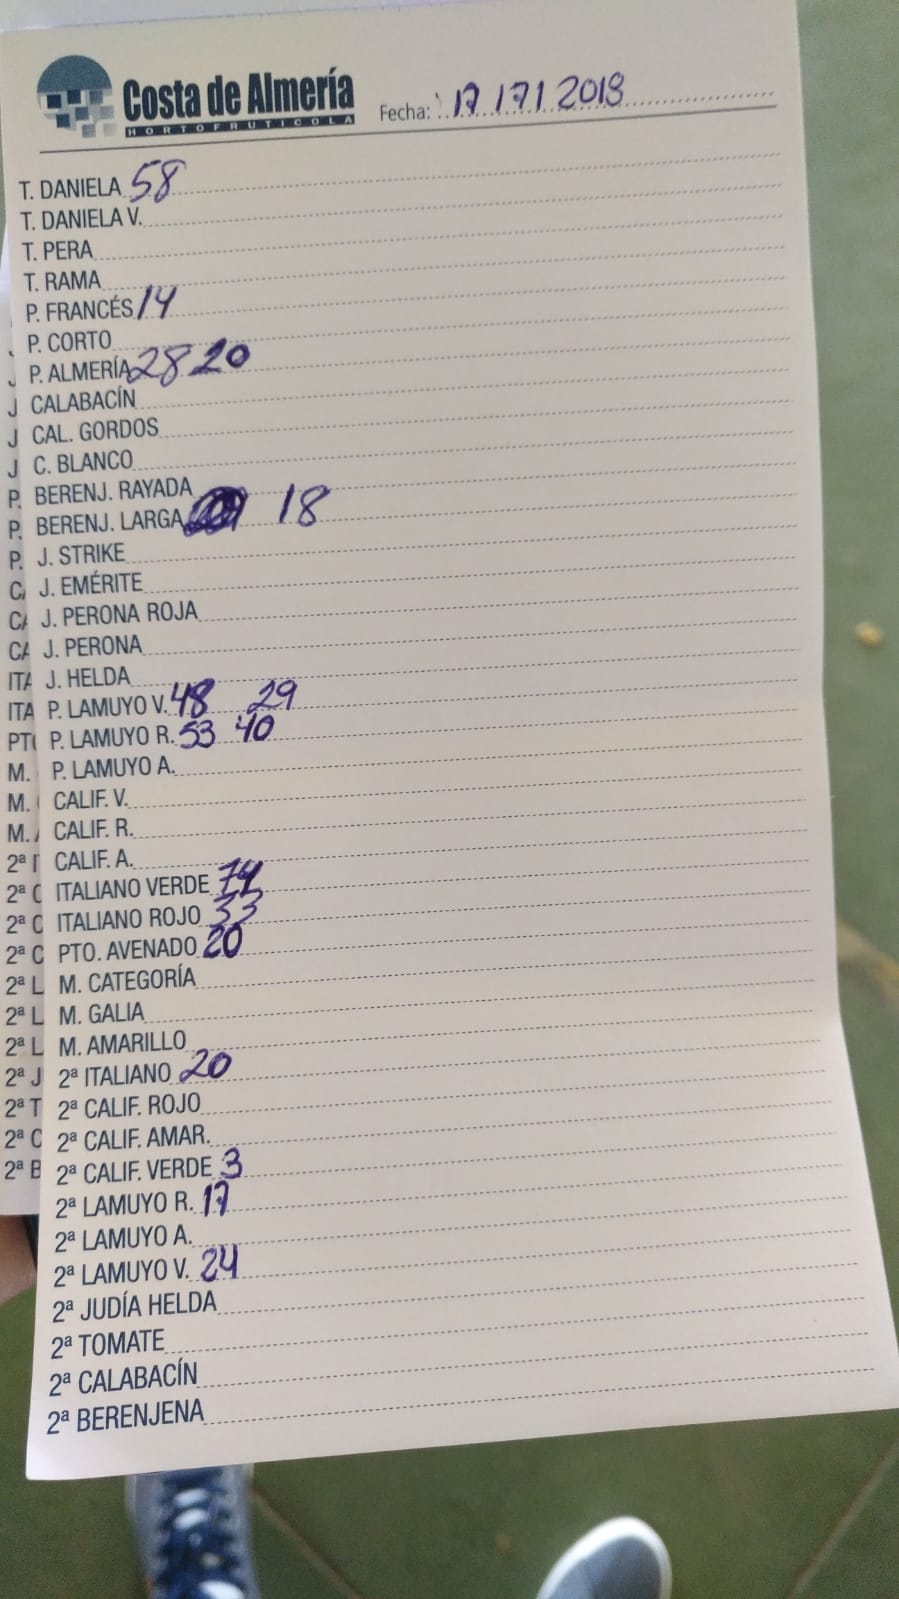 Costa de Almería
HORTOFRUTICOLA
Fecha: 17 171 2018
T. DANIELA 58
T. DANIELA V.
T. PERA
T. RAMA
P. FRANCÉS 14
P. CORTO
P. ALMERÍA 28 20
CALABACÍN
CAL. GORDOS
C. BLANCO
BERENJ. RAYADA
BERENJ. LARGA 18
J. STRIKE
J. EMÉRITE
J. PERONA ROJA
J. PERONA
J. HELDA
P. LAMUYO V. 48 29
P. LAMUYO R. 53 40
P. LAMUYO A.
CALIF. V.
CALIF. R.
CALIF. A.
ITALIANO VERDE 74
ITALIANO ROJO 33
PTO. AVENADO 20
M. CATEGORÍA
M. GALIA
M. AMARILLO
2ª ITALIANO 20
2ª CALIF. ROJO
2ª CALIF. AMAR.
2ª CALIF. VERDE 3
2ª LAMUYO R. 17
2ª LAMUYO A.
2ª LAMUYO V. 24
2ª JUDÍA HELDA
2ª TOMATE
2ª CALABACÍN
2ª BERENJENA